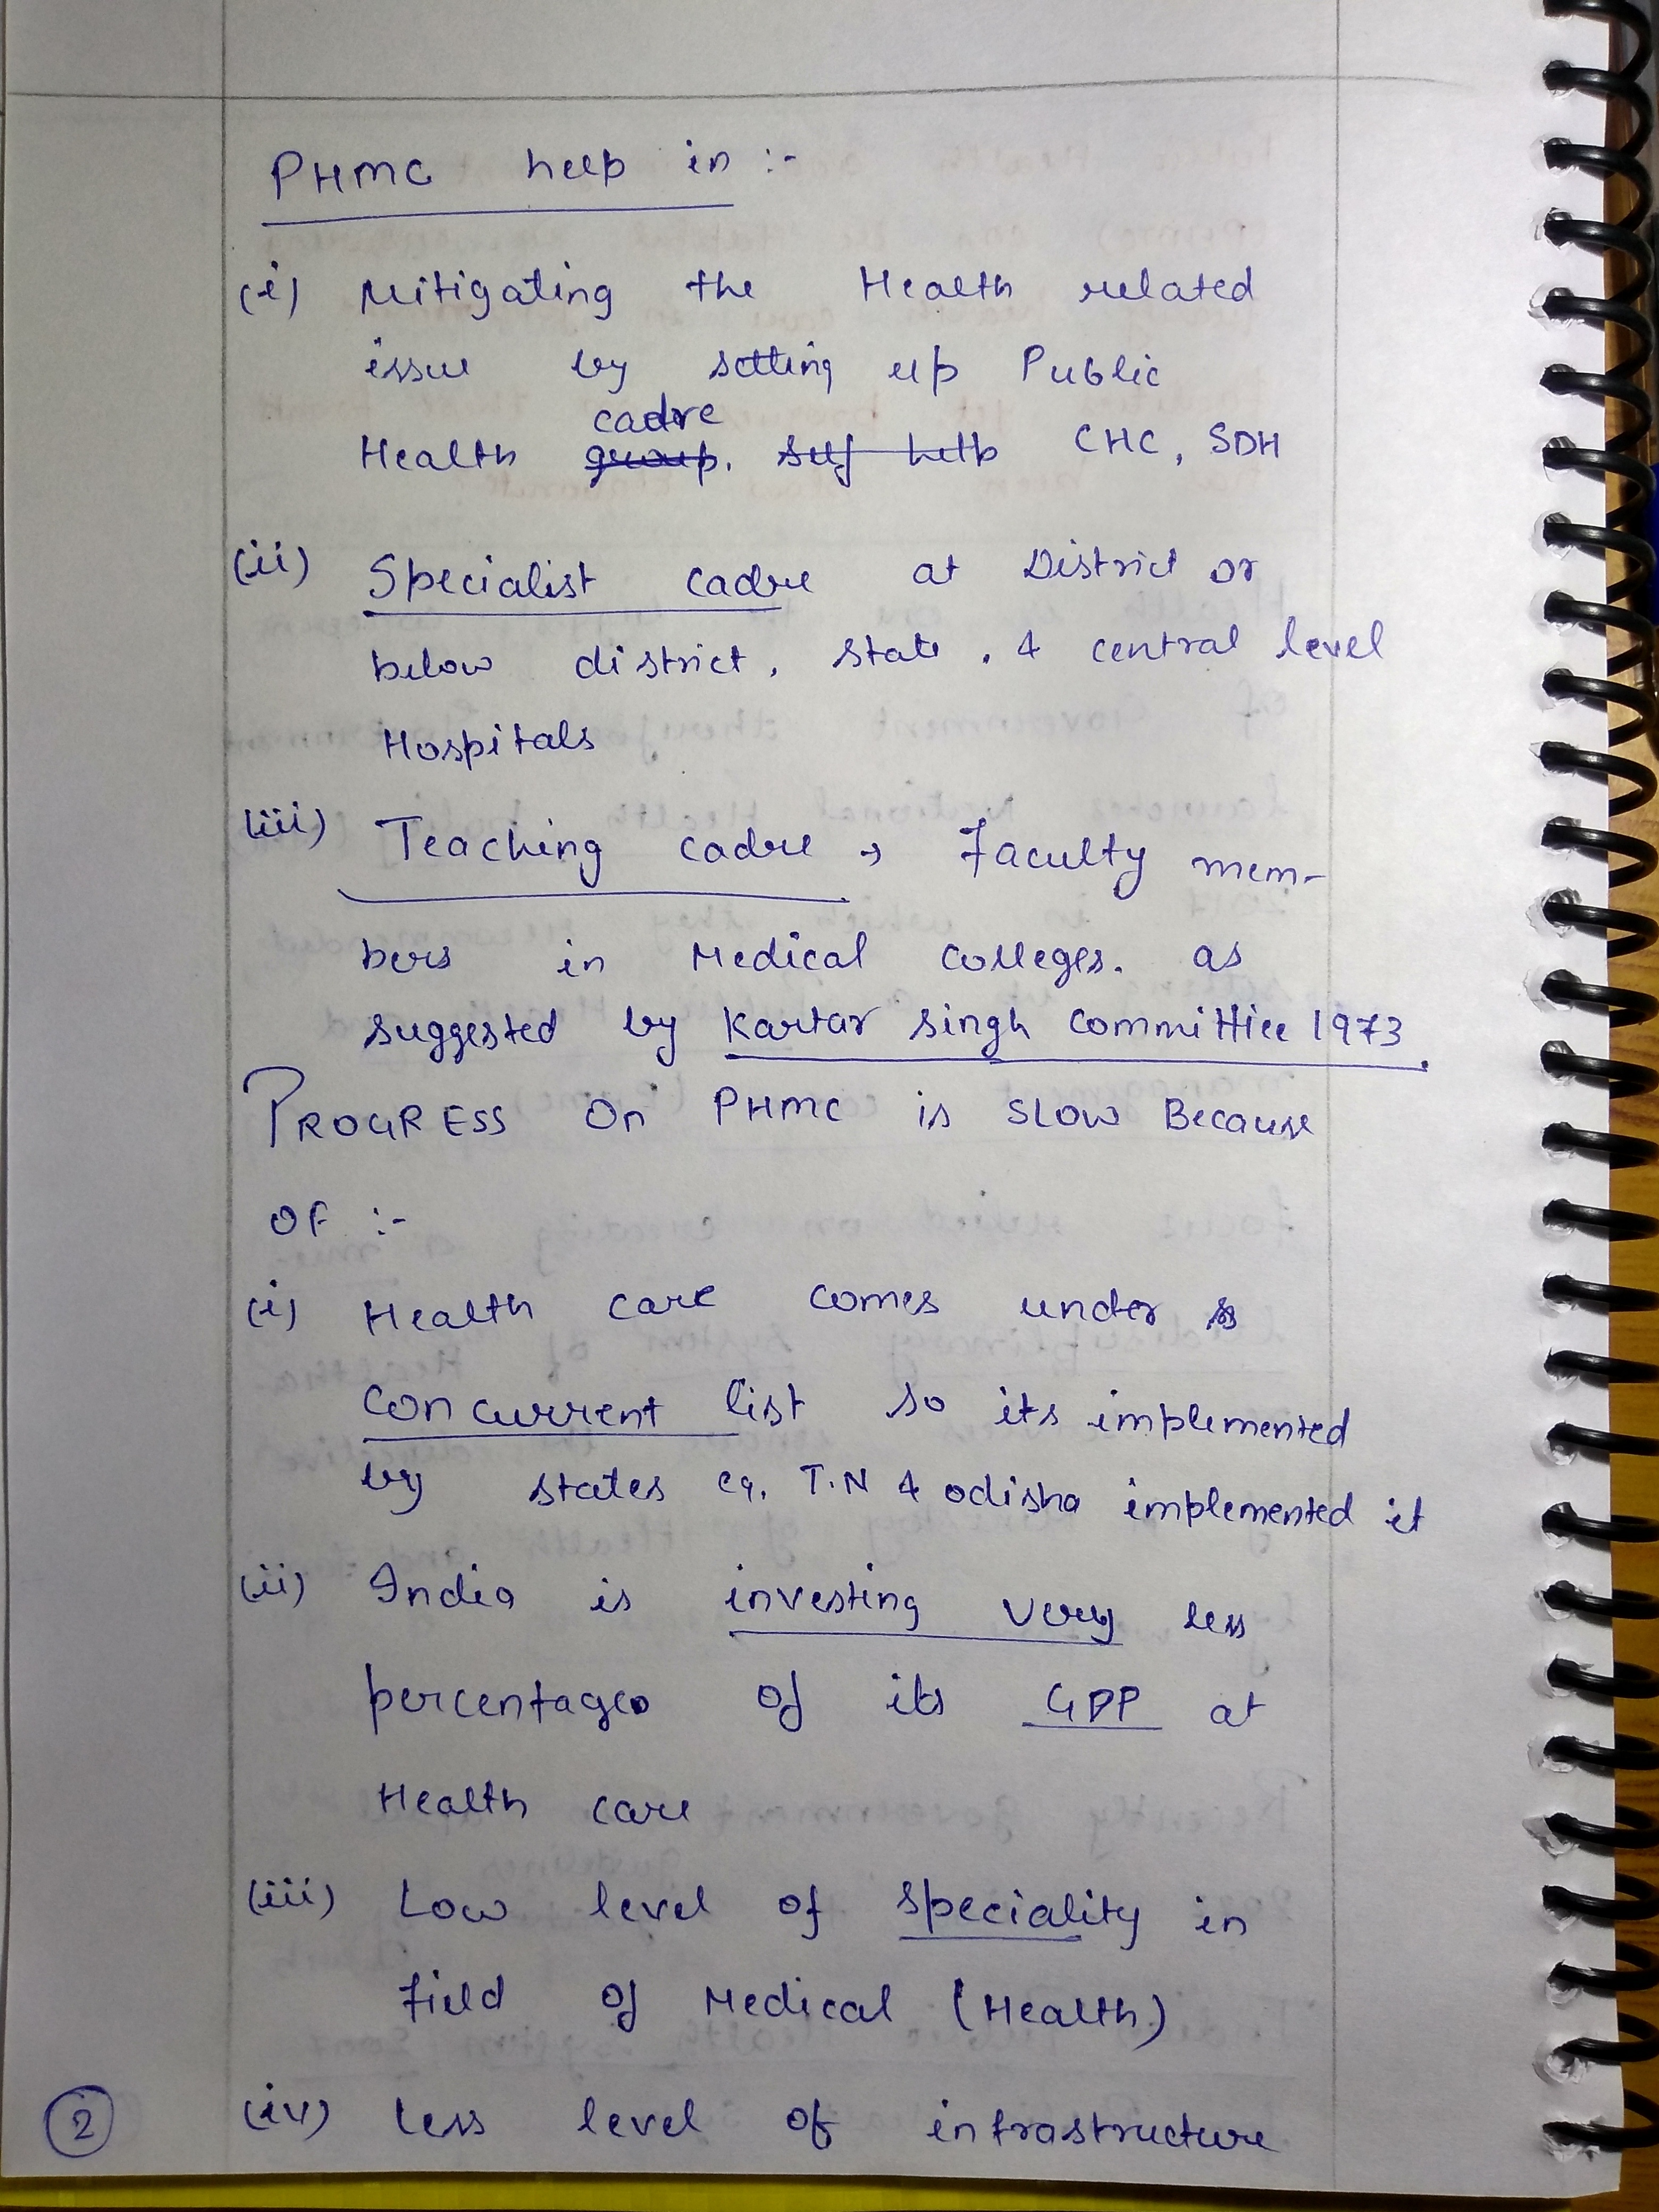 PHMC help in :-
(i) Mitigating the Health related
issue by setting up Public
cadre
Health group. self help CHC, SDH
(ii) Specialist cadre at District or
below district, state, & central level
Hospitals
(iii) Teaching cadre → Faculty mem-
bers in Medical colleges. as
suggested by Kartar singh committiee 1973.
PROGRESS On PHMC is SLOW Because
OF :-
(i) Health care comes under
concurrent list so its implemented
by states eg. T.N & odisha implemented it
(ii) India is investing very less
percentage of its GDP at
Health care
(iii) Low level of speciality in
field of Medical (Health)
(iv) Less level of infrastructure
2